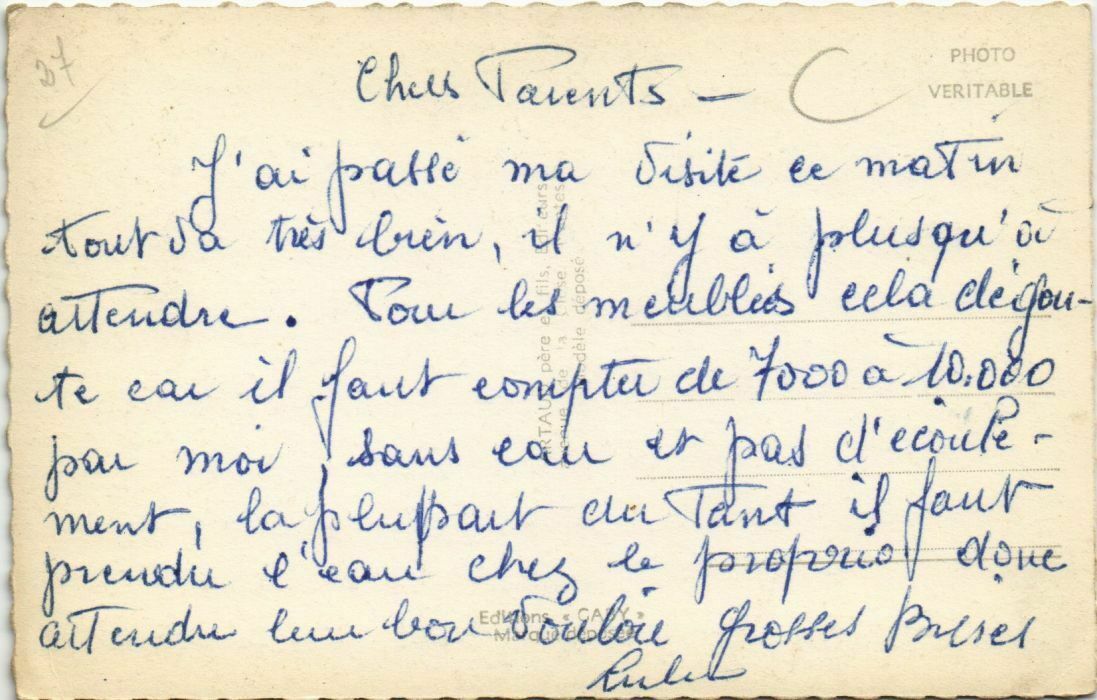 37
PHOTO
VERITABLE
Chers Parents –
J'ai passé ma visite ce matin
tout va très bien, il n'y à plusqu'à
attendre. Pour les meublés cela dégou-
te car il faut compter de 7000 à 10.000
par moi, sans eau et pas d'écoule-
ment, la plupart du Tant il faut
prendre l'eau chez le proprio donc
attendre leur bon vouloir grosses Bises
ARTAUD père et fils, Editeurs
de la
Modèle déposé
Editions « GABY »
Marque déposée